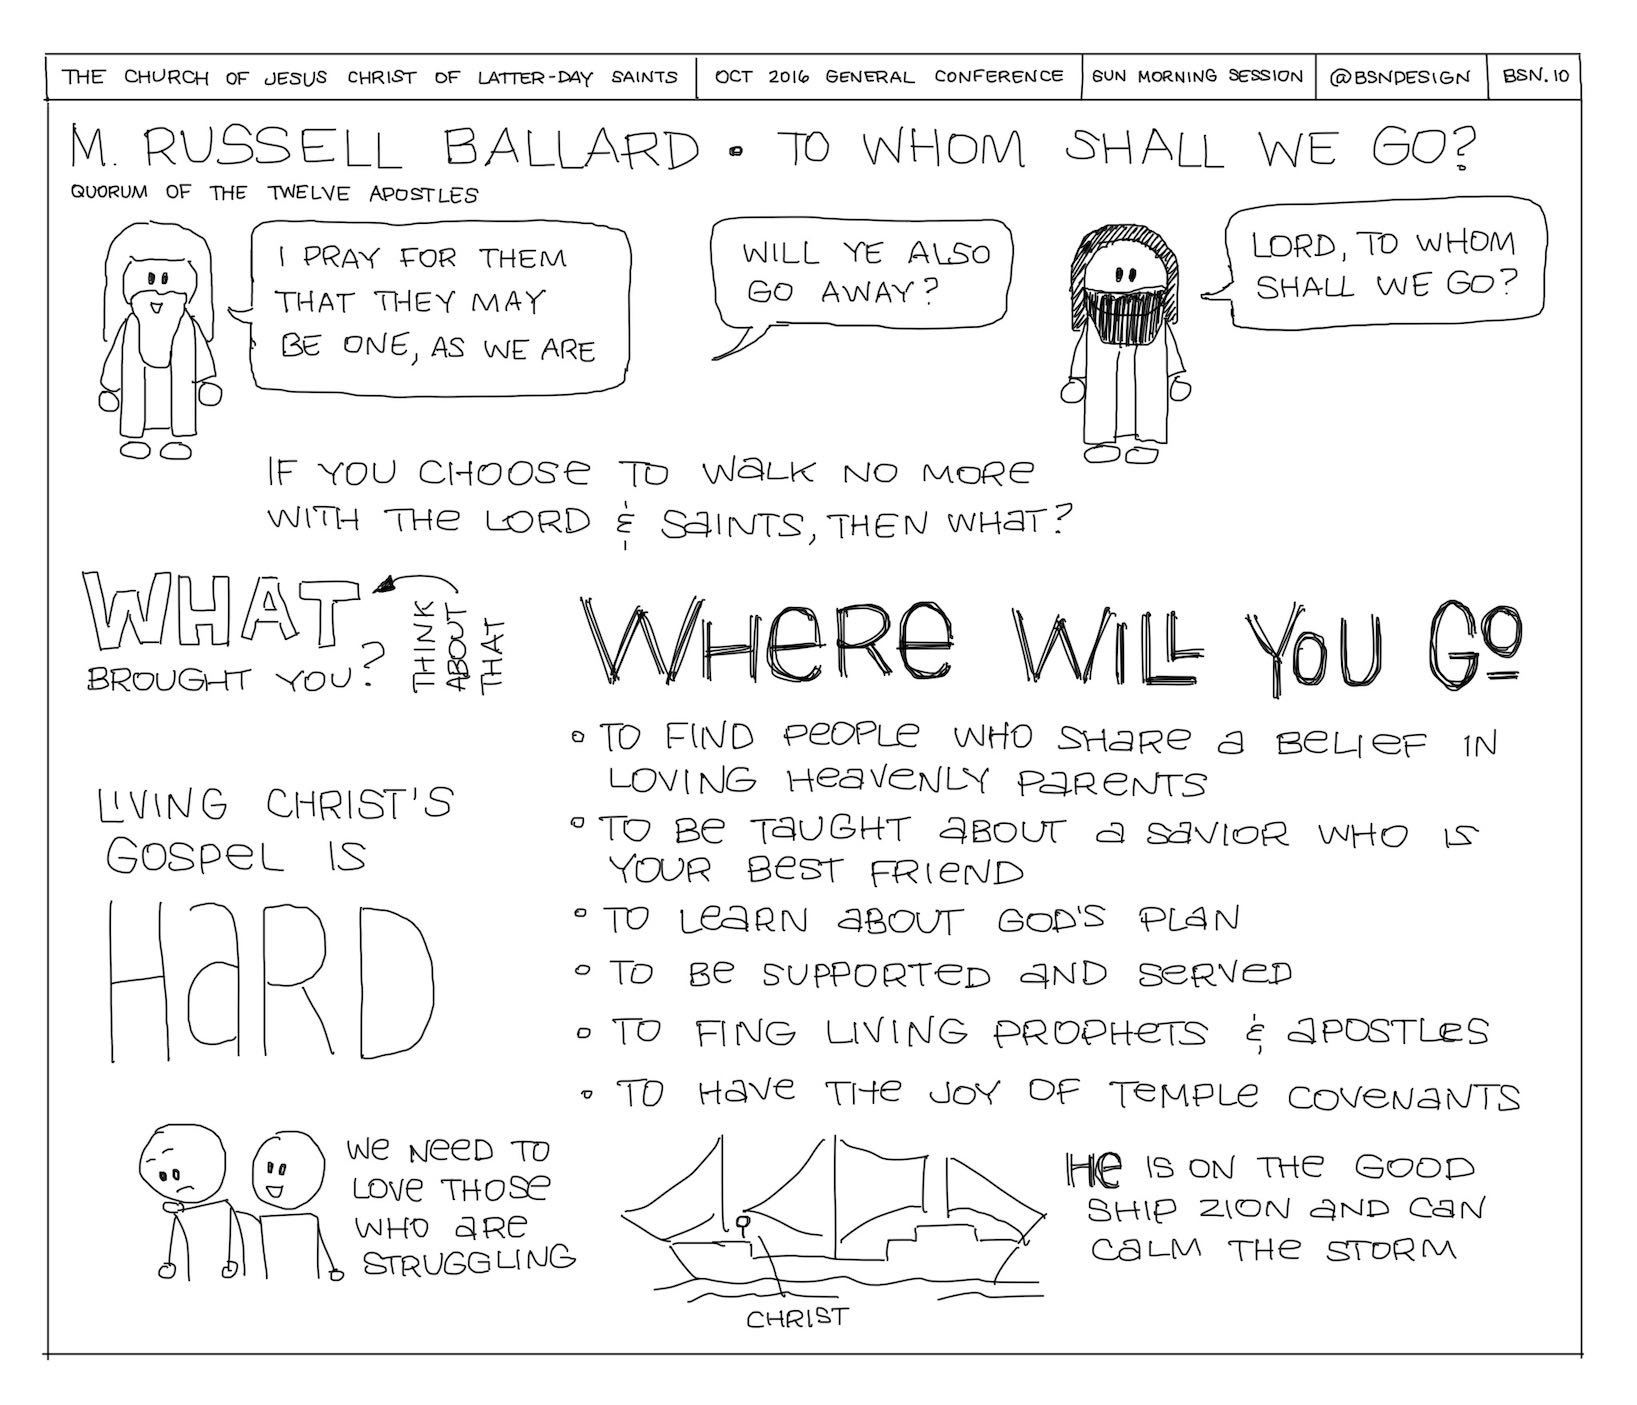 THE CHURCH OF JESUS CHRIST OF LATTER-DAY SAINTS
OCT 2016 GENERAL CONFERENCE
SUN MORNING SESSION
@BSNDESIGN
BSN.IO
M. RUSSELL BALLARD • TO WHOM SHALL WE GO?
QUORUM OF THE TWELVE APOSTLES
I PRAY FOR THEM
THAT THEY MAY
BE ONE, AS WE ARE
WILL YE ALSO
GO AWAY?
LORD, TO WHOM
SHALL WE GO?
IF YOU CHOOSE TO WALK NO MORE
WITH THE LORD & SAINTS, THEN WHAT?
WHAT
BROUGHT YOU?
THINK
ABOUT
THAT
WHERE WILL YOU GO
• TO FIND PEOPLE WHO SHARE A BELIEF IN
LOVING HEAVENLY PARENTS
• TO BE TAUGHT ABOUT A SAVIOR WHO IS
YOUR BEST FRIEND
• TO LEARN ABOUT GOD'S PLAN
• TO BE SUPPORTED AND SERVED
• TO FING LIVING PROPHETS & APOSTLES
• TO HAVE THE JOY OF TEMPLE COVENANTS
LIVING CHRIST'S
GOSPEL IS
HARD
WE NEED TO
LOVE THOSE
WHO ARE
STRUGGLING
CHRIST
HE IS ON THE GOOD
SHIP ZION AND CAN
CALM THE STORM